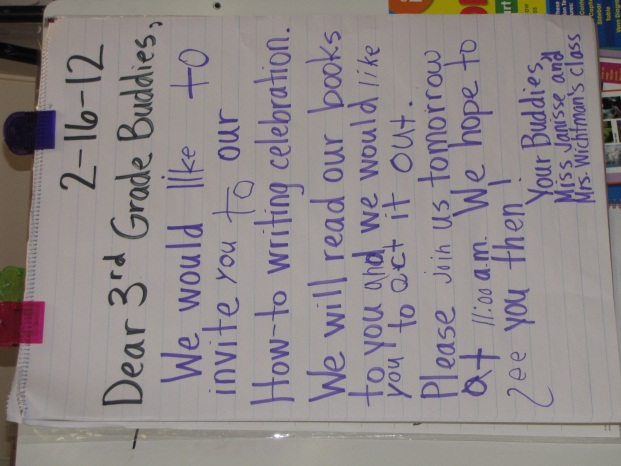 2-16-12
Dear 3rd Grade Buddies,
We would like to
invite you to our
How-to writing celebration.
We will read our books
to you and we would like
you to act it out.
Please join us tomorrow
at 11:00 am. We hope to
see you then!
Your Buddies,
Miss Janisse and
Mrs. Wichtman's class